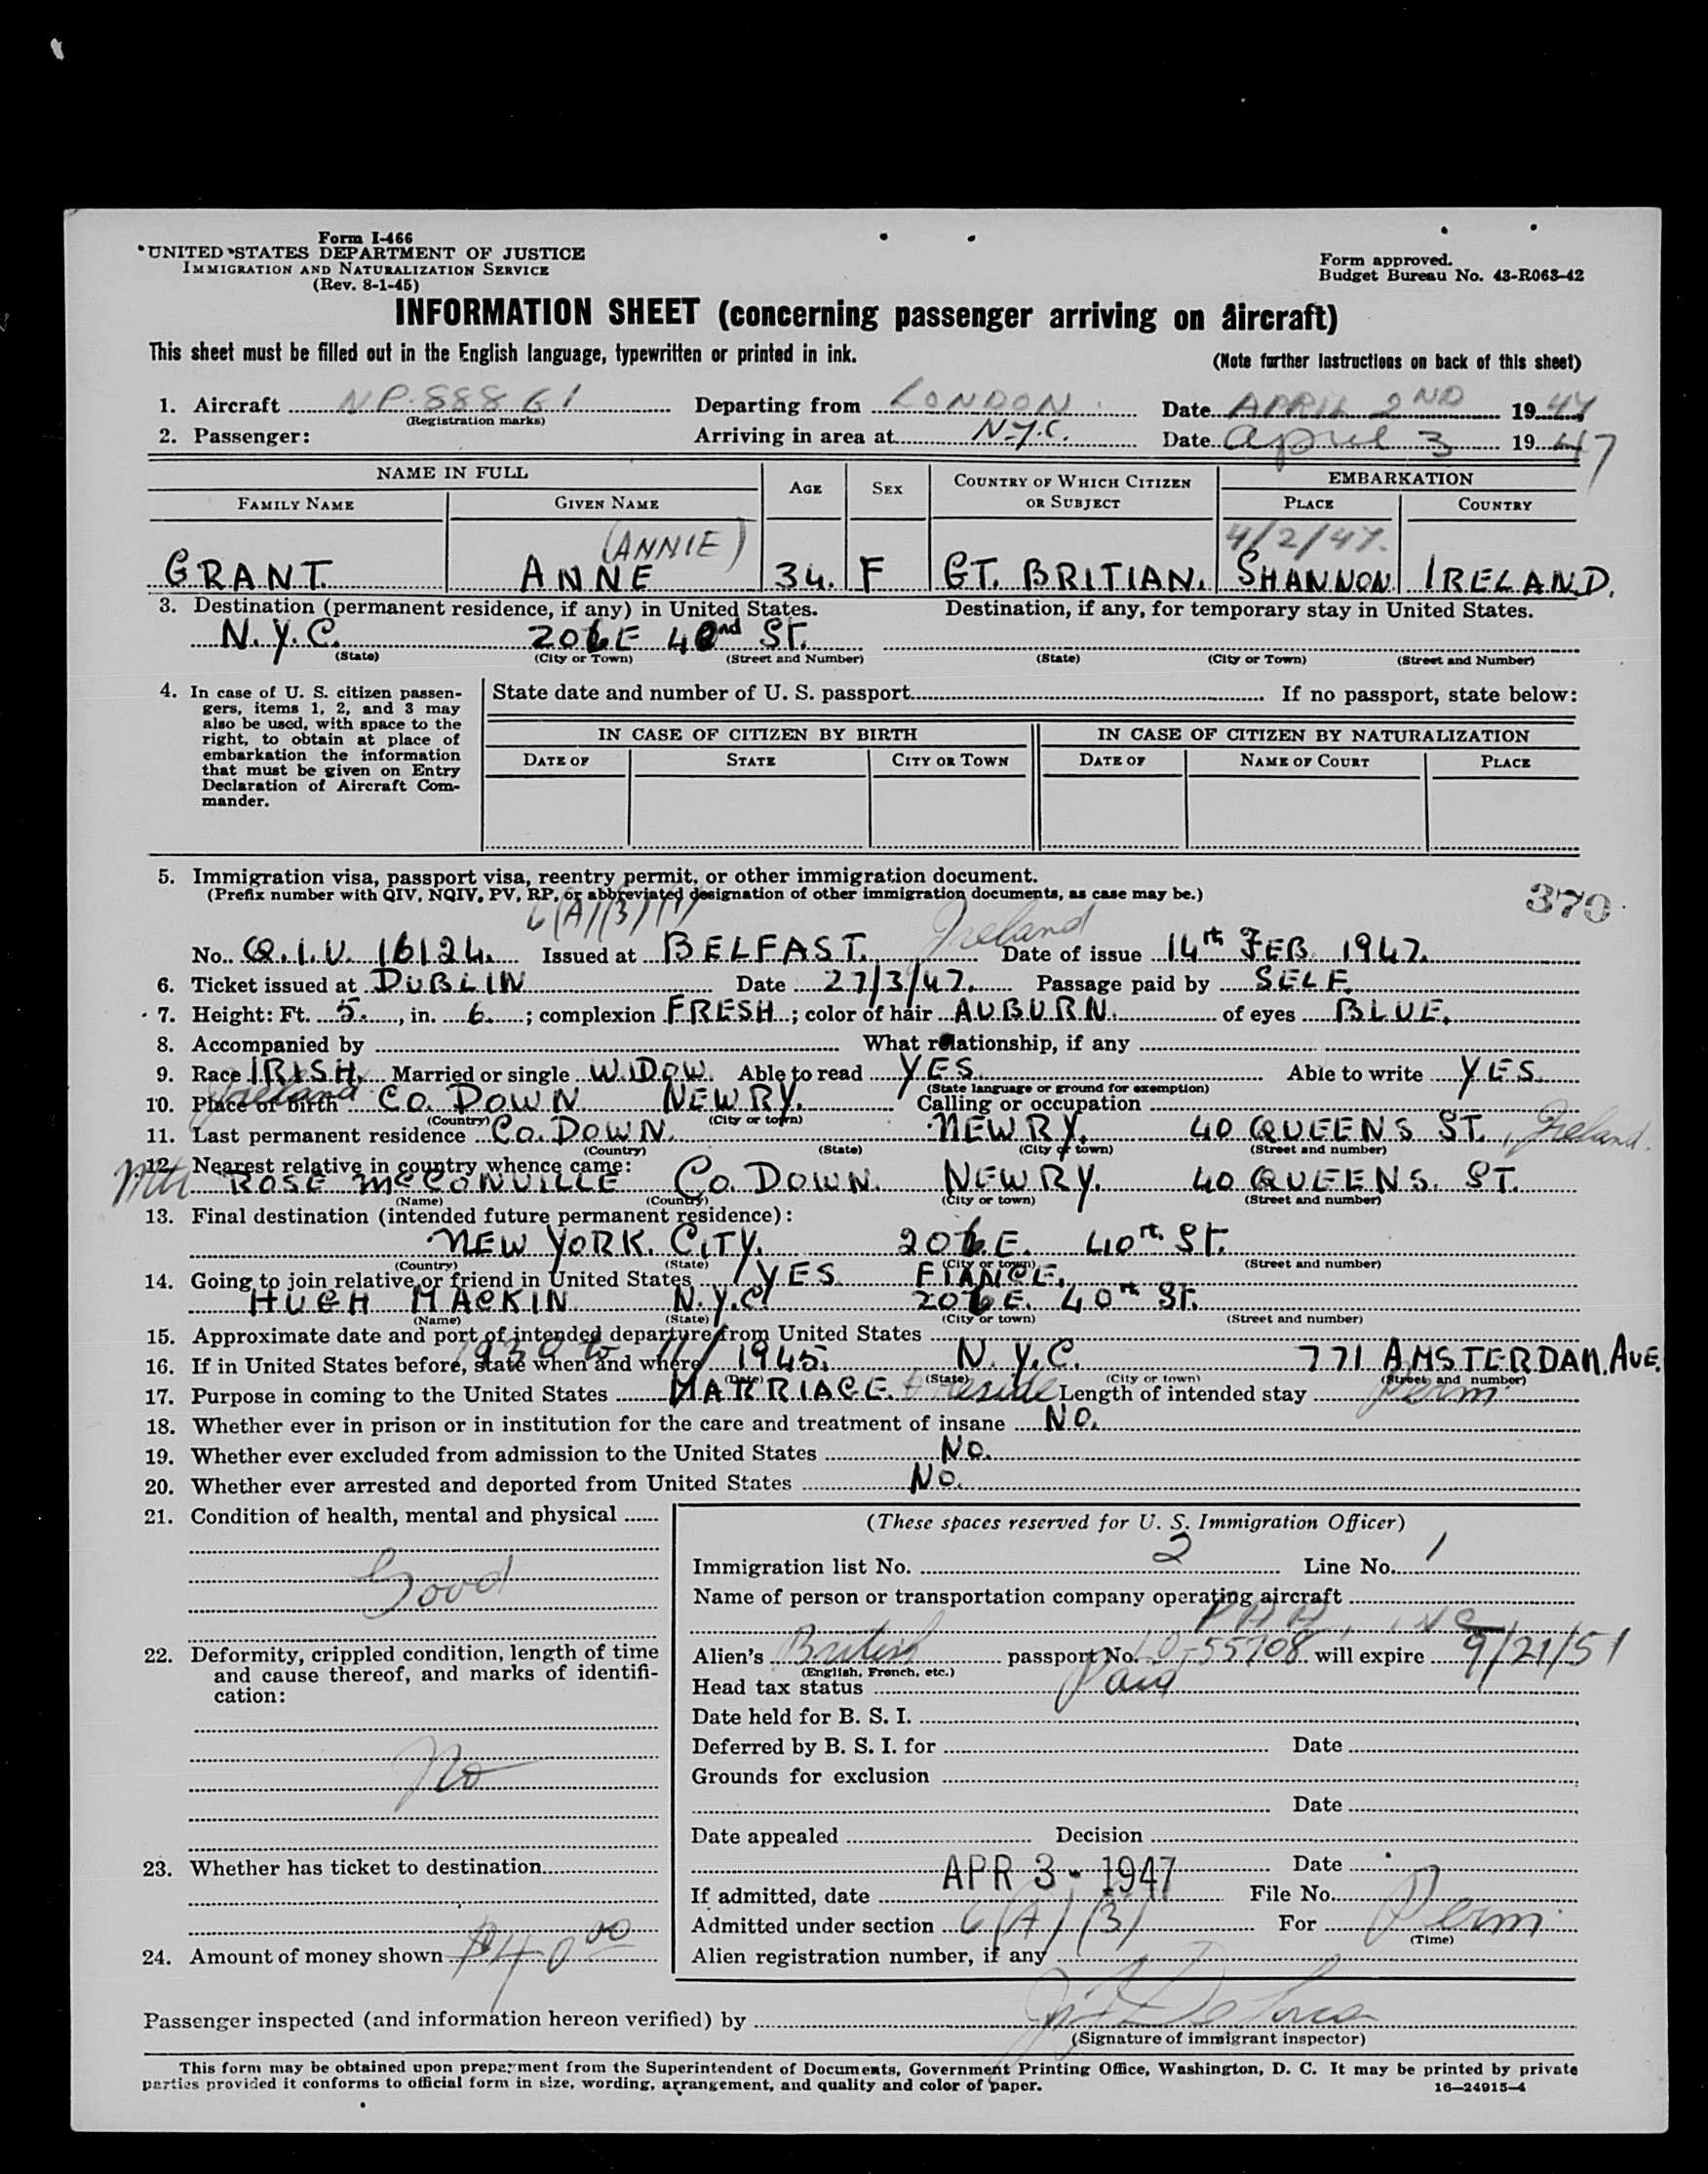 Form I-466
UNITED STATES DEPARTMENT OF JUSTICE
IMMIGRATION AND NATURALIZATION SERVICE
(Rev. 8-1-45)
Form approved.
Budget Bureau No. 43-R063-42
INFORMATION SHEET (concerning passenger arriving on aircraft)
This sheet must be filled out in the English language, typewritten or printed in ink.
(Note further instructions on back of this sheet)
1. Aircraft NP. 88861 Departing from LONDON Date APRIL 2ND 1947
(Registration marks)
2. Passenger: Arriving in area at N.Y.C. Date April 3 1947
NAME IN FULL AGE SEX COUNTRY OF WHICH CITIZEN OR SUBJECT EMBARKATION
FAMILY NAME GIVEN NAME PLACE COUNTRY
(ANNIE) 4/2/47.
GRANT. ANNE 34. F GT. BRITIAN. SHANNON IRELAND.
3. Destination (permanent residence, if any) in United States. Destination, if any, for temporary stay in United States.
N.Y.C. 206 E 40nd ST.
(State) (City or Town) (Street and Number) (State) (City or Town) (Street and Number)
4. In case of U. S. citizen passen-
gers, items 1, 2, and 3 may
also be used, with space to the
right, to obtain at place of
embarkation the information
that must be given on Entry
Declaration of Aircraft Com-
mander.
State date and number of U. S. passport If no passport, state below:
IN CASE OF CITIZEN BY BIRTH IN CASE OF CITIZEN BY NATURALIZATION
DATE OF STATE CITY OR TOWN DATE OF NAME OF COURT PLACE
5. Immigration visa, passport visa, reentry permit, or other immigration document.
(Prefix number with QIV, NQIV, PV, RP, or abbreviated designation of other immigration documents, as case may be.)
370
6(A)(3)(1) Ireland
No. Q.I.V. 16124. Issued at BELFAST. Date of issue 14th FEB. 1947.
6. Ticket issued at DUBLIN Date 27/3/47. Passage paid by SELF.
7. Height: Ft. 5., in. 6. ; complexion FRESH ; color of hair AUBURN. of eyes BLUE.
8. Accompanied by What relationship, if any
9. Race IRISH. Married or single WIDOW. Able to read YES. Able to write YES
(State language or ground for exemption)
Ireland
10. Place of birth CO. DOWN NEWRY. Calling or occupation
(Country) (City or town)
11. Last permanent residence CO. DOWN. NEWRY. 40 QUEENS ST., Ireland.
(Country) (State) (City or town) (Street and number)
12. Nearest relative in country whence came:
Mth ROSE McCONVILLE CO. DOWN. NEWRY. 40 QUEENS. ST.
(Name) (Country) (City or town) (Street and number)
13. Final destination (intended future permanent residence):
NEW YORK. CITY. 206 E. 40th ST.
(Country) (State) (City or town) (Street and number)
14. Going to join relative or friend in United States YES FIANCE.
HUGH MACKIN N.Y.C. 206 E. 40th ST.
(Name) (State) (City or town) (Street and number)
15. Approximate date and port of intended departure from United States
1930 to 11/
16. If in United States before, state when and where 1945. N.Y.C. 771 AMSTERDAM. AVE.
(Date) (State) (City or town) (Street and number)
17. Purpose in coming to the United States MARRIAGE. & Reside Length of intended stay Perm.
18. Whether ever in prison or in institution for the care and treatment of insane NO.
19. Whether ever excluded from admission to the United States NO.
20. Whether ever arrested and deported from United States NO.
21. Condition of health, mental and physical
Good
22. Deformity, crippled condition, length of time
and cause thereof, and marks of identifi-
cation:
No
23. Whether has ticket to destination
24. Amount of money shown $40.00
(These spaces reserved for U. S. Immigration Officer)
Immigration list No. 2 Line No. 1
Name of person or transportation company operating aircraft
PAA, INC
Alien's British passport No. 55708 will expire 9/21/51
(English, French, etc.)
Head tax status Paid
Date held for B. S. I.
Deferred by B. S. I. for Date
Grounds for exclusion
Date
Date appealed Decision
Date
If admitted, date APR 3 - 1947 File No.
Admitted under section 6(A)(3) For Perm.
(Time)
Alien registration number, if any
Passenger inspected (and information hereon verified) by
(Signature of immigrant inspector)
This form may be obtained upon prepayment from the Superintendent of Documents, Government Printing Office, Washington, D. C. It may be printed by private
parties provided it conforms to official form in size, wording, arrangement, and quality and color of paper.
16—24915-4